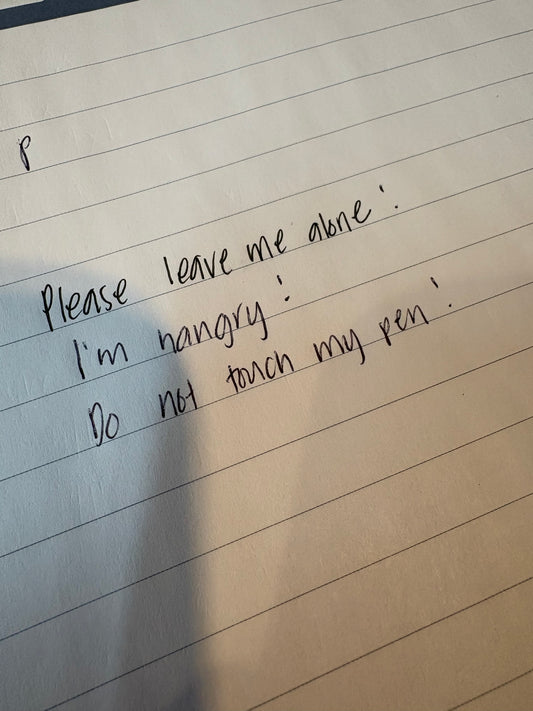 P
Please leave me alone!
I'm hangry!
Do not touch my pen!